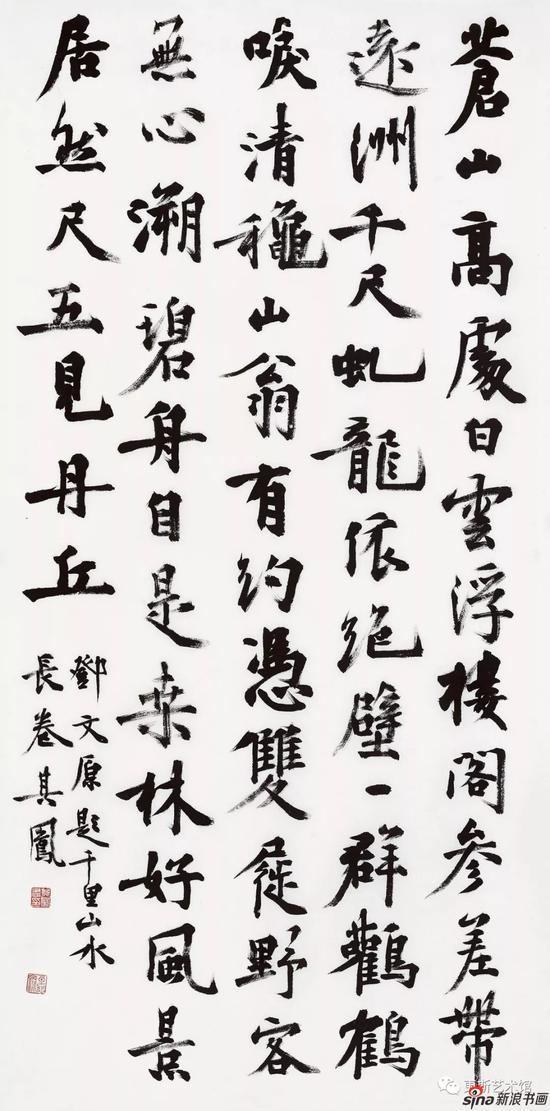 蒼山高處白雲浮樓閣參差帶
遠洲千尺虬龍依絶壁一群鸛鶴
唳清穐山翁有約憑雙屐野客
無心溯碧舟自是桒林好風景
居然尺五見丹丘
鄧文原題千里山水
長卷其鳳
sina新浪书画